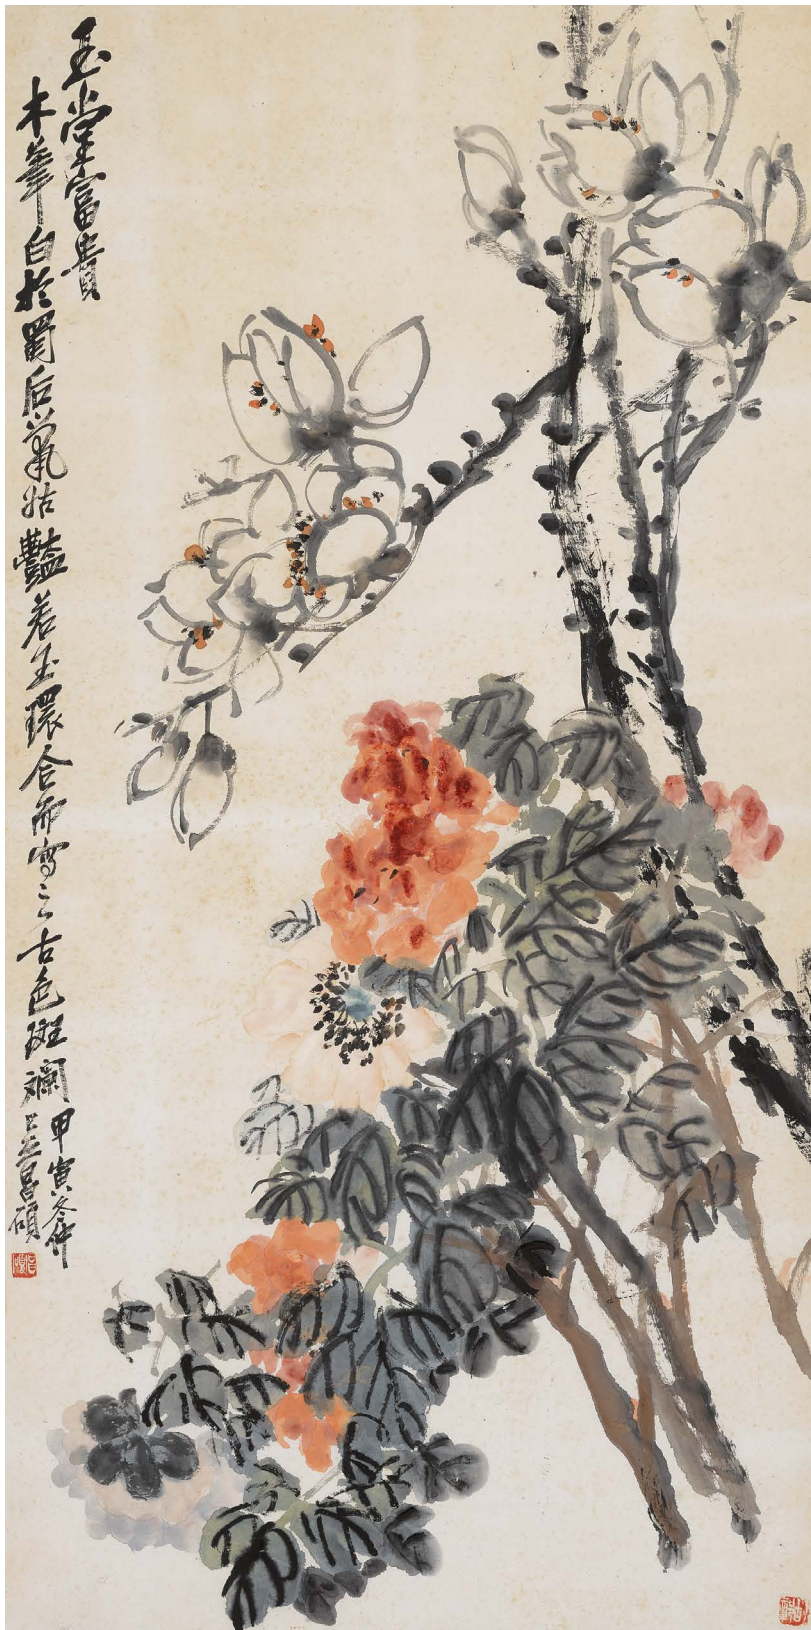 玉堂富貴
木筆白於蜀后鼠姑豔若玉環合而寫之古色斑斕
甲寅冬仲
吳昌碩